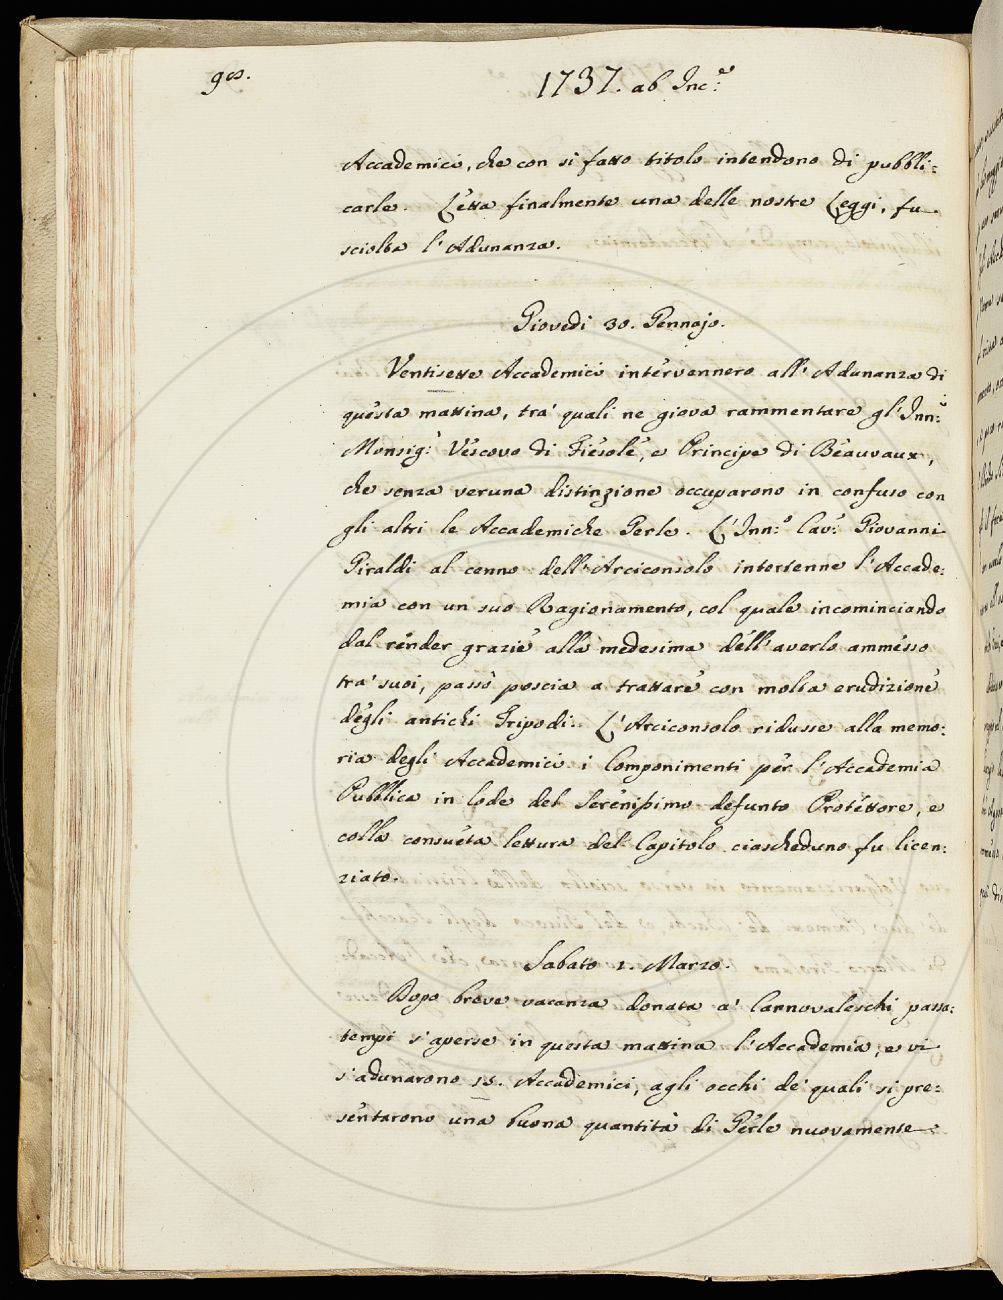 90.
1737. ab Inc.e
Accademici, che con si fatto titolo intendono di pubbli:
carle. Letta finalmente una delle nostre Leggi, fu
sciolta l'Adunanza.
Giovedi 30. Gennajo.
Ventisette Accademici intervennero all'Adunanza di
questa mattina, tra' quali ne giova rammentare gl'Inn:i
Monsig:r Vescovo di Fiesole, e Principe di Beauvaux,
che senza veruna distinzione occuparono in confuso con
gli altri le Accademiche Gerle. L'Inn:o Cav:r Giovanni
Giraldi al cenno dell'Arciconsolo intertenne l'Accade:
mia con un suo Ragionamento, col quale incominciando
dal render grazie alla medesima dell'averlo ammesso
tra' suoi, passò poscia a trattare con molta erudizione
degli antichi Tripodi. L'Arciconsolo ridusse alla memo:
ria degli Accademici i Componimenti per l'Accademia
Pubblica in lode del Serenissimo defunto Protettore, e
colla consueta lettura del Capitolo ciascheduno fu licen:
ziato.
Sabato 1. Marzo.
Dopo breve vacanza donata a' Carnovaleschi passa:
tempi s'aperse in questa mattina l'Accademia, e vi
s'adunarono 15. Accademici, agli occhi de' quali si pre:
sentarono una buona quantità di Gerle nuovamente